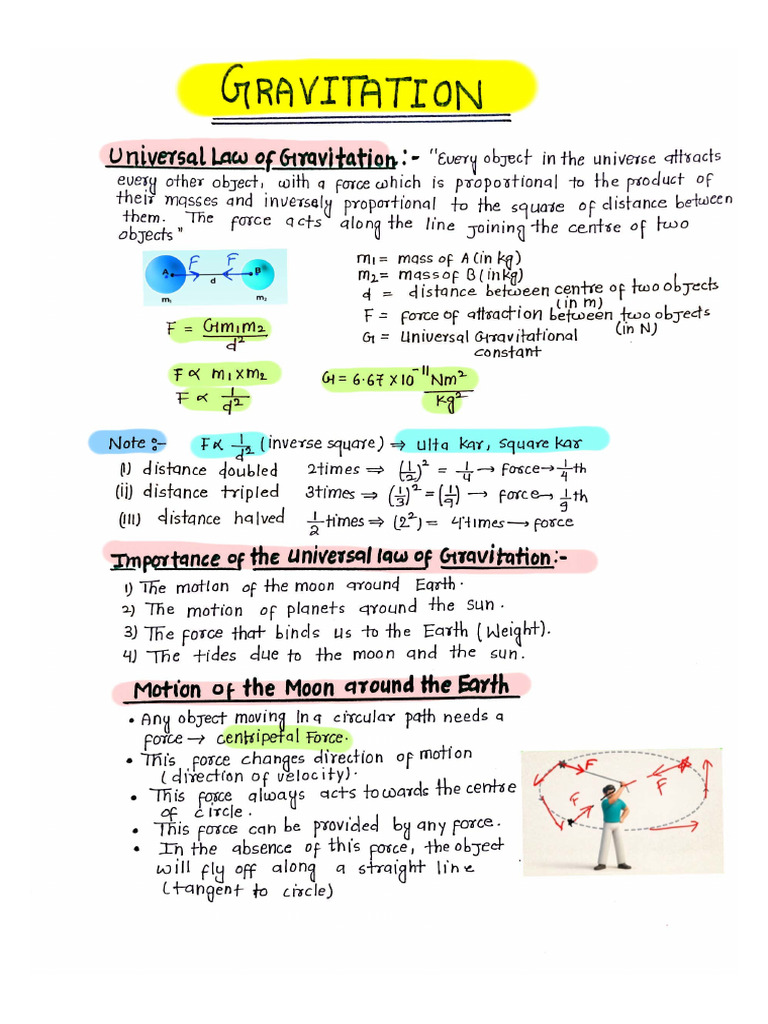 GRAVITATION
Universal Law of Gravitation :- "Every object in the universe attracts
every other object, with a force which is proportional to the product of
their masses and inversely proportional to the square of distance between
them. The force acts along the line joining the centre of two
objects"
F F
A d B
m₁ m₂
m₁ = mass of A (in kg)
m₂ = mass of B (in kg)
d = distance between centre of two objects
(in m)
F = force of attraction between two objects
(in N)
G = Universal Gravitational
constant
F = Gm₁m₂/d²
F ∝ m₁ × m₂
F ∝ 1/d²
G = 6.67 × 10⁻¹¹ Nm²/kg²
Note :- F ∝ 1/d² (inverse square) ⇒ ulta kar, square kar
(i) distance doubled 2times ⇒ (1/2)² = 1/4 → force → 1/4 th
(ii) distance tripled 3times ⇒ (1/3)² = (1/9) → force → 1/9 th
(iii) distance halved 1/2 times ⇒ (2²) = 4times → force
Importance of the universal law of Gravitation :-
1) The motion of the moon around Earth.
2) The motion of planets around the sun.
3) The force that binds us to the Earth (Weight).
4) The tides due to the moon and the sun.
Motion of the Moon around the Earth
• Any object moving in a circular path needs a
force → centripetal Force.
• This force changes direction of motion
(direction of velocity).
• This force always acts towards the centre
of circle.
• This force can be provided by any force.
• In the absence of this force, the object
will fly off along a straight line
(tangent to circle)
F
F
F